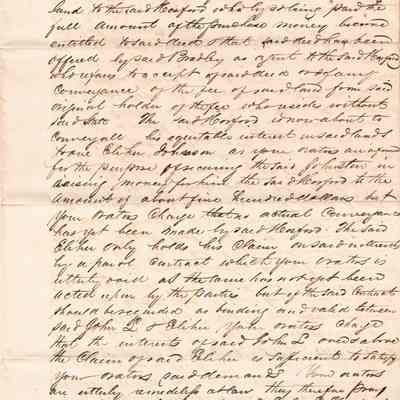 land to the said Hosford who by so being paid the
full amount of the purchase money become
entitled to said deed & that said deed has been
offered by said Bradley as agent to the said Hosford
who refuses to accept of said deed or of any
conveyance of the fee of said land from said
original holder of the fee who reside without
said State The said Hosford is now about to
convey all his equitable interest in said lands
to one Elihu Johnson as your orators are informed
for the purpose of securing the said Johnson in
raising money for him the said Hosford to the
amount of about five hundred dollars but
your orators charge that no actual conveyance
has yet been made by said Hosford. The said
Elihu only holds his claim on said
by a parol contract which your orators is
utterly void as the same has not yet been
acted upon by the parties but if the said contract
should be regarded as binding and valid between
said John L & Elihu your orators charge
that the interests of said John L over & above
the claim of said Elihu is sufficient to satisfy
your orators said demands Your orators
are utterly remediless at law they therefore pray